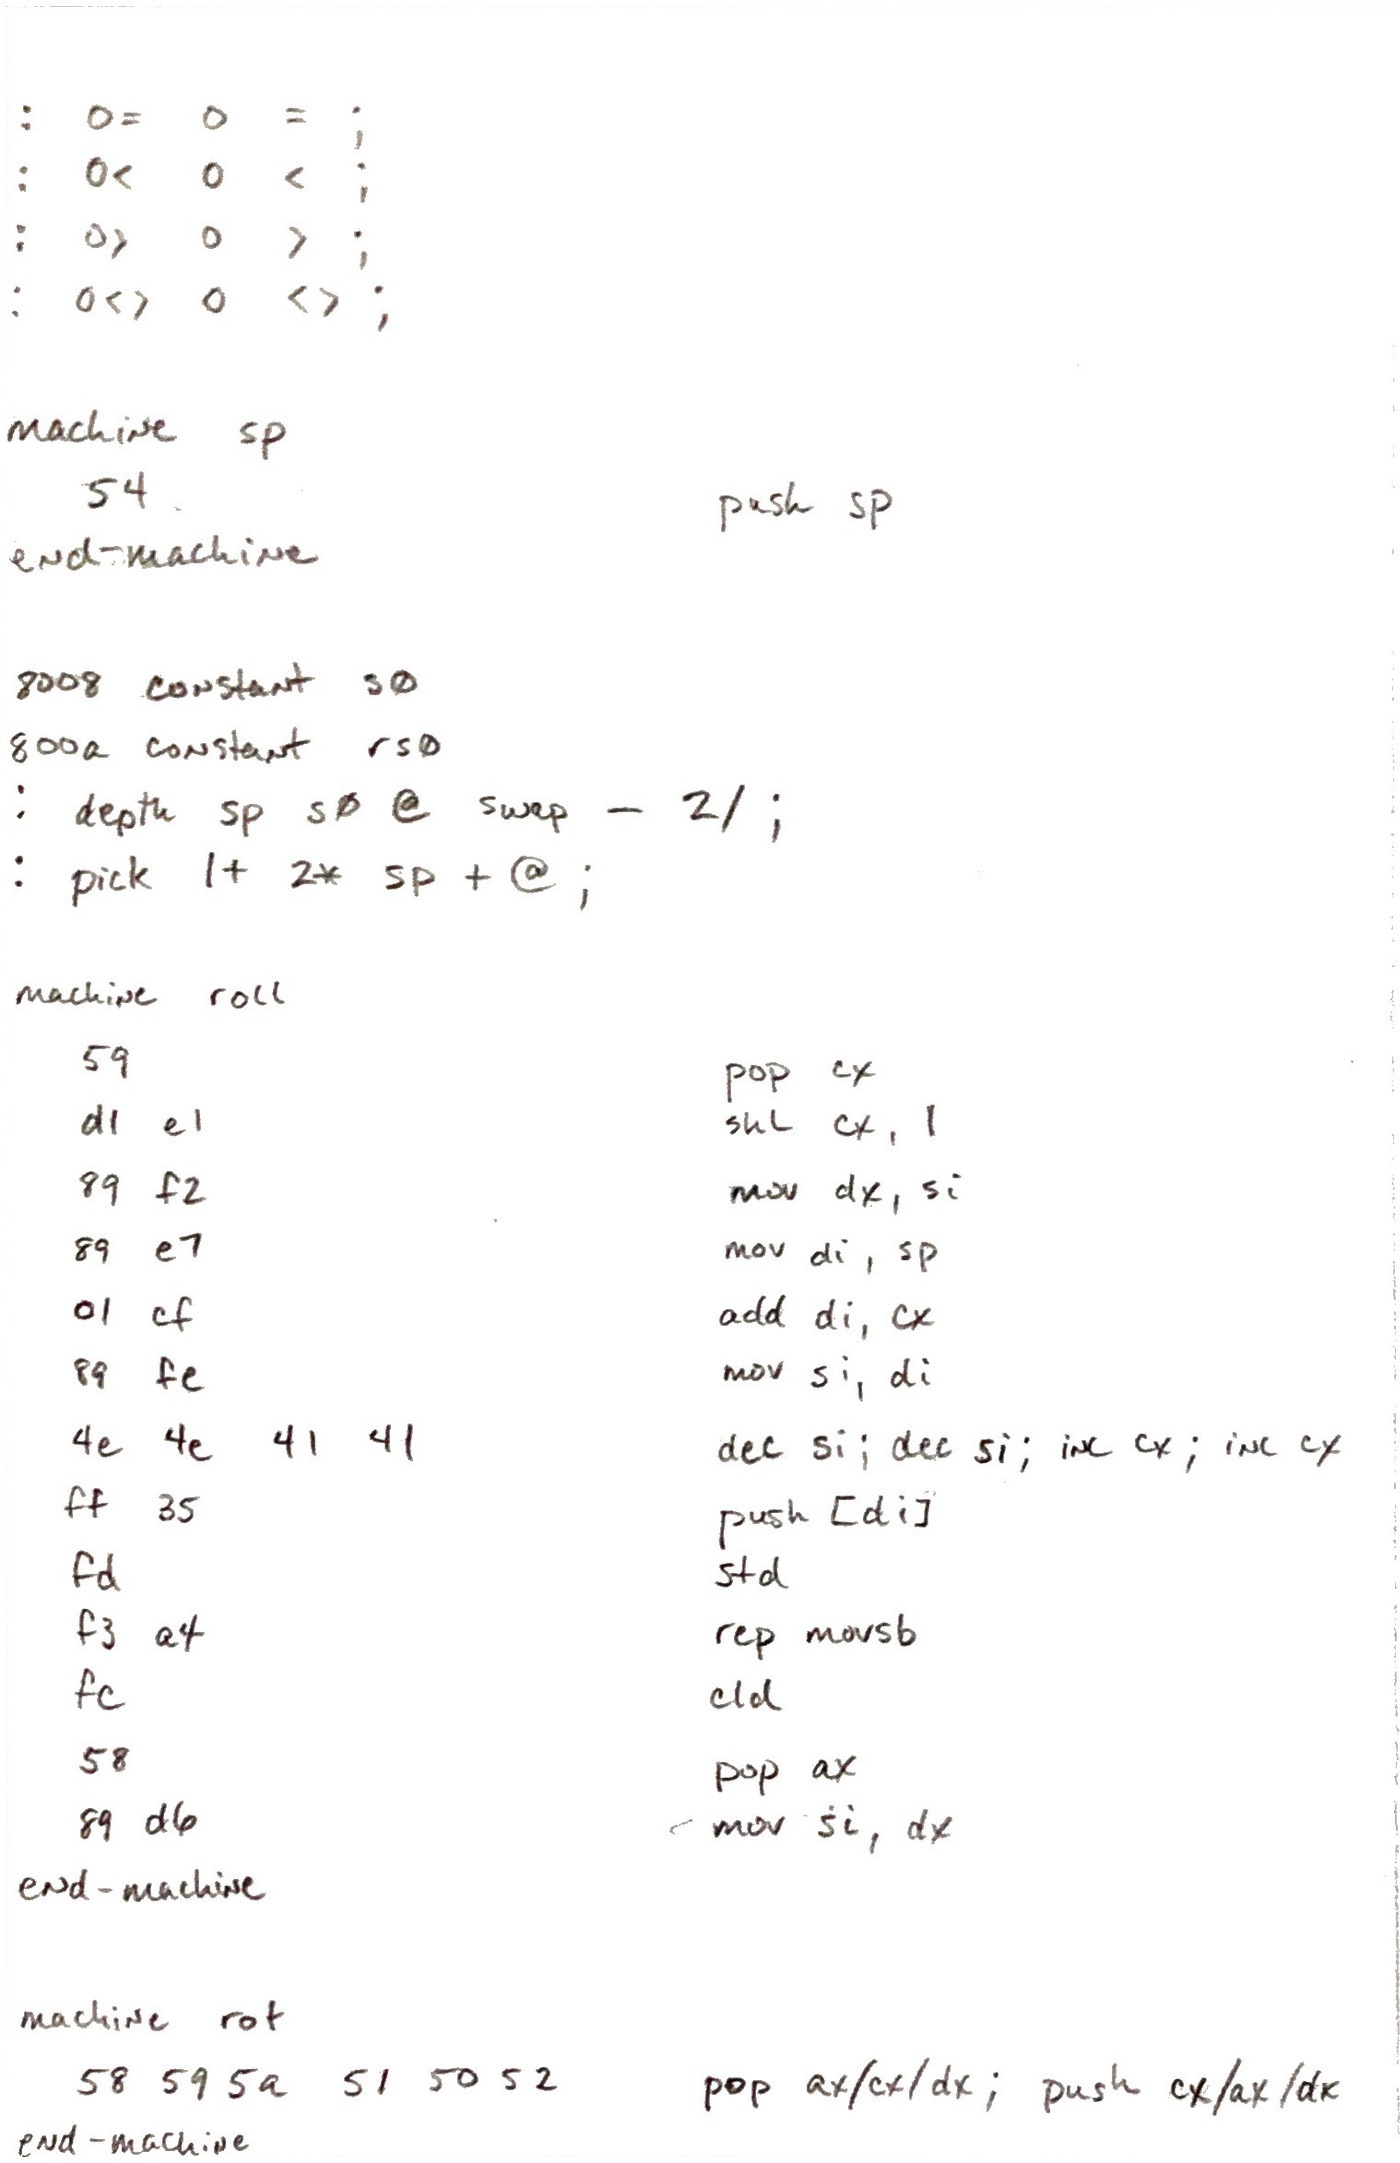 : 0= 0 = ;
: 0< 0 < ;
: 0> 0 > ;
: 0<> 0 <> ;
machine sp
54 push sp
end-machine
8008 constant s0
800a constant rs0
: depth sp s0 @ swap - 2/ ;
: pick 1+ 2* sp + @ ;
machine roll
59 pop cx
d1 e1 shl cx, 1
89 f2 mov dx, si
89 e7 mov di, sp
01 cf add di, cx
89 fe mov si, di
4e 4e 41 41 dec si; dec si; inc cx; inc cx
ff 35 push [di]
fd std
f3 a4 rep movsb
fc cld
58 pop ax
89 d6 mov si, dx
end-machine
machine rot
58 59 5a 51 50 52 pop ax/cx/dx; push cx/ax/dx
end-machine